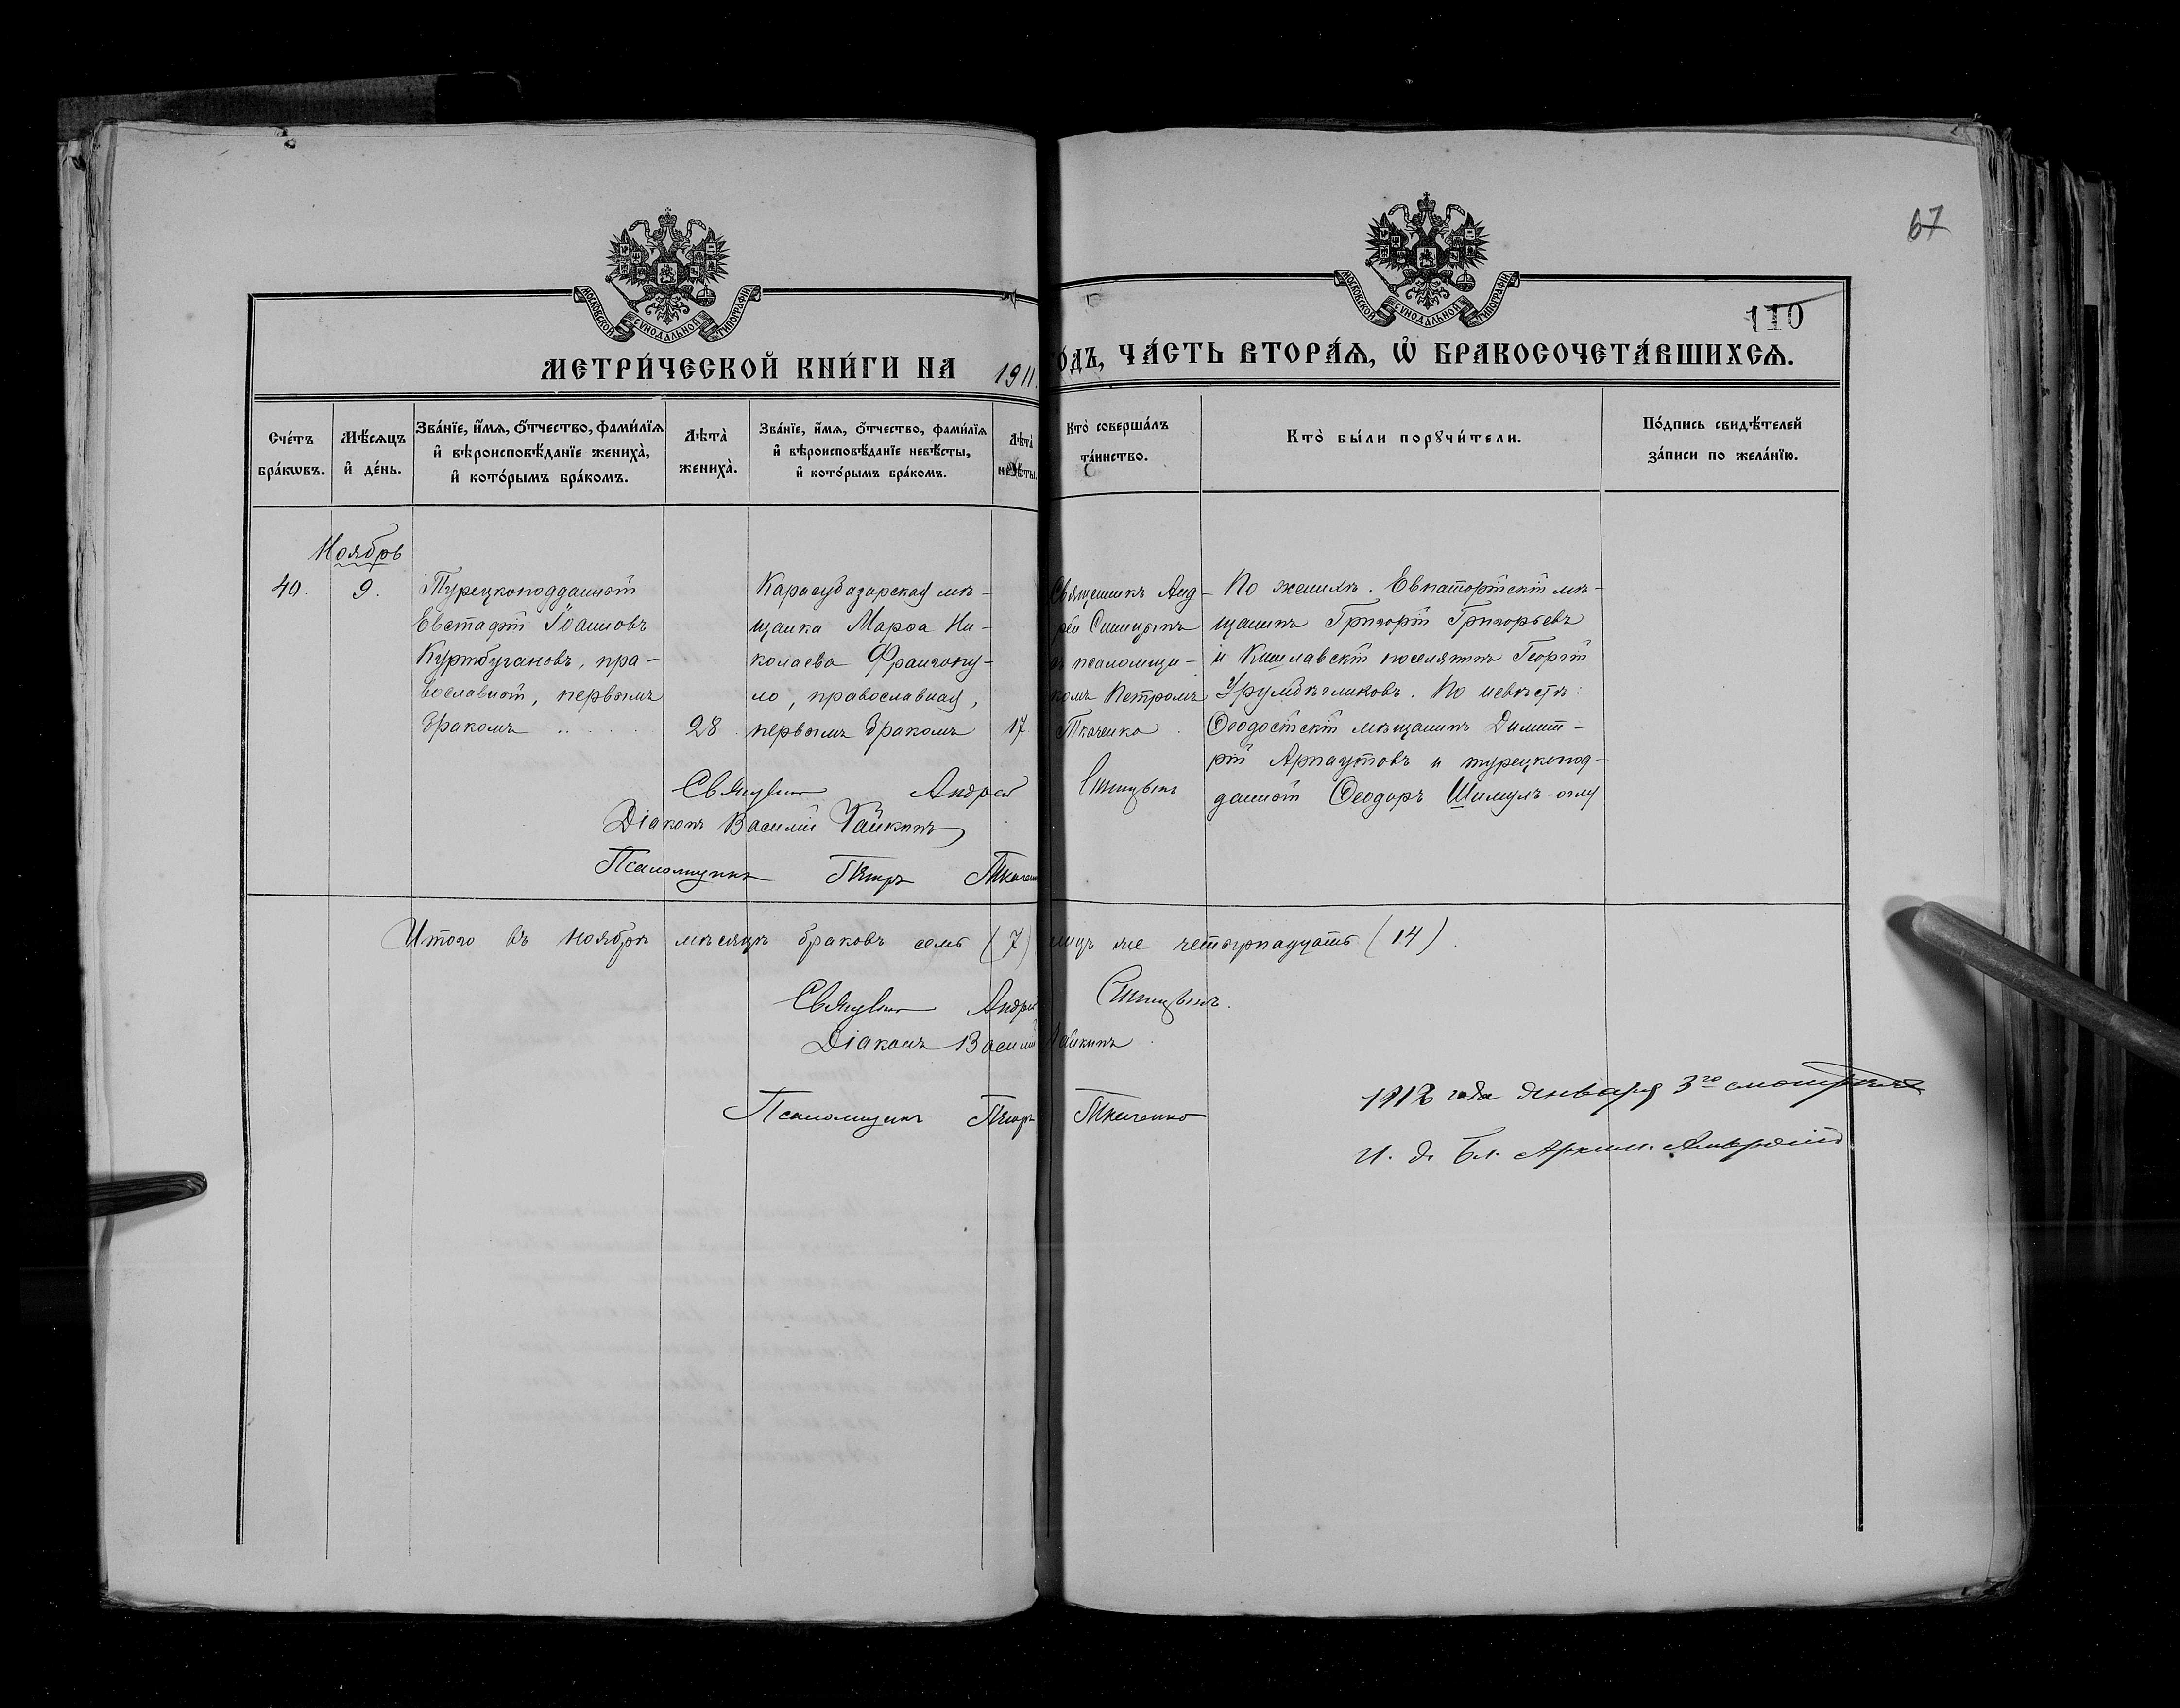 67
110
МОСКОВСКОЙ СѴНОДАЛЬНОЙ ТИПОГРАФІИ
МОСКОВСКОЙ СѴНОДАЛЬНОЙ ТИПОГРАФІИ
МЕТРИ́ЧЕСКОЙ КНИ́ГИ НА 1911 ГО́ДЪ, ЧА́СТЬ ВТОРА́Ѧ, Ѽ БРАКОСОЧЕТА́ВШИХСѦ.
Сче́тъ бра́кѡвъ.
Мѣ́сѧцъ и҆ де́нь.
Зва́нїе, и҆́мѧ, ѻ҆́тчество, фами́лїѧ и҆ вѣроисповѣ́данїе жениха̀, и҆ кото́рымъ бра́комъ.
Лѣта̀ жениха̀.
Зва́нїе, и҆́мѧ, ѻ҆́тчество, фами́лїѧ и҆ вѣроисповѣ́данїе невѣ́сты, и҆ кото́рымъ бра́комъ.
Лѣта̀ невѣ́сты.
Кто̀ соверша́лъ та́инство.
Кто̀ бы́ли порꙋчи́тели.
По́дпись свидѣ́телей за́писи по жела́нїю.
Ноябрь
40.
9.
Турецкоподданный
Евстафій Іоанновъ
Куртбугановъ, пра-
вославный, первымъ
бракомъ
28
Карасубазарская мѣ-
щанка Марѳа Ни-
колаева Франгопу-
ло, православная,
первымъ бракомъ
17
Священникъ Анд-
рей Синицынъ
съ псаломщи-
комъ Петромъ
Ткаченко
По женихѣ. Евпаторійскій мѣ-
щанинъ Григорій Григорьевъ
и Кишлавскій поселянинъ Георгій
Урумбѣгликовъ. По невѣстѣ:
Ѳеодосійскій мѣщанинъ Димит-
рій Арнаутовъ и турецкопод-
данный Ѳеодоръ Шимулъ-оглу
Священ Андрей Синицынъ
Діаконъ Василій Чайкинъ
Псаломщикъ Петръ Ткаченко
Итого въ Ноябрѣ мѣсяцѣ браковъ семь (7) лицъ же четырнадцать (14).
Священ Андрей Синицынъ.
Діаконъ Василій Чайкинъ
Псаломщикъ Петръ Ткаченко
1912 года Января 3го смотрѣлъ
И. д. Бл. Архим.